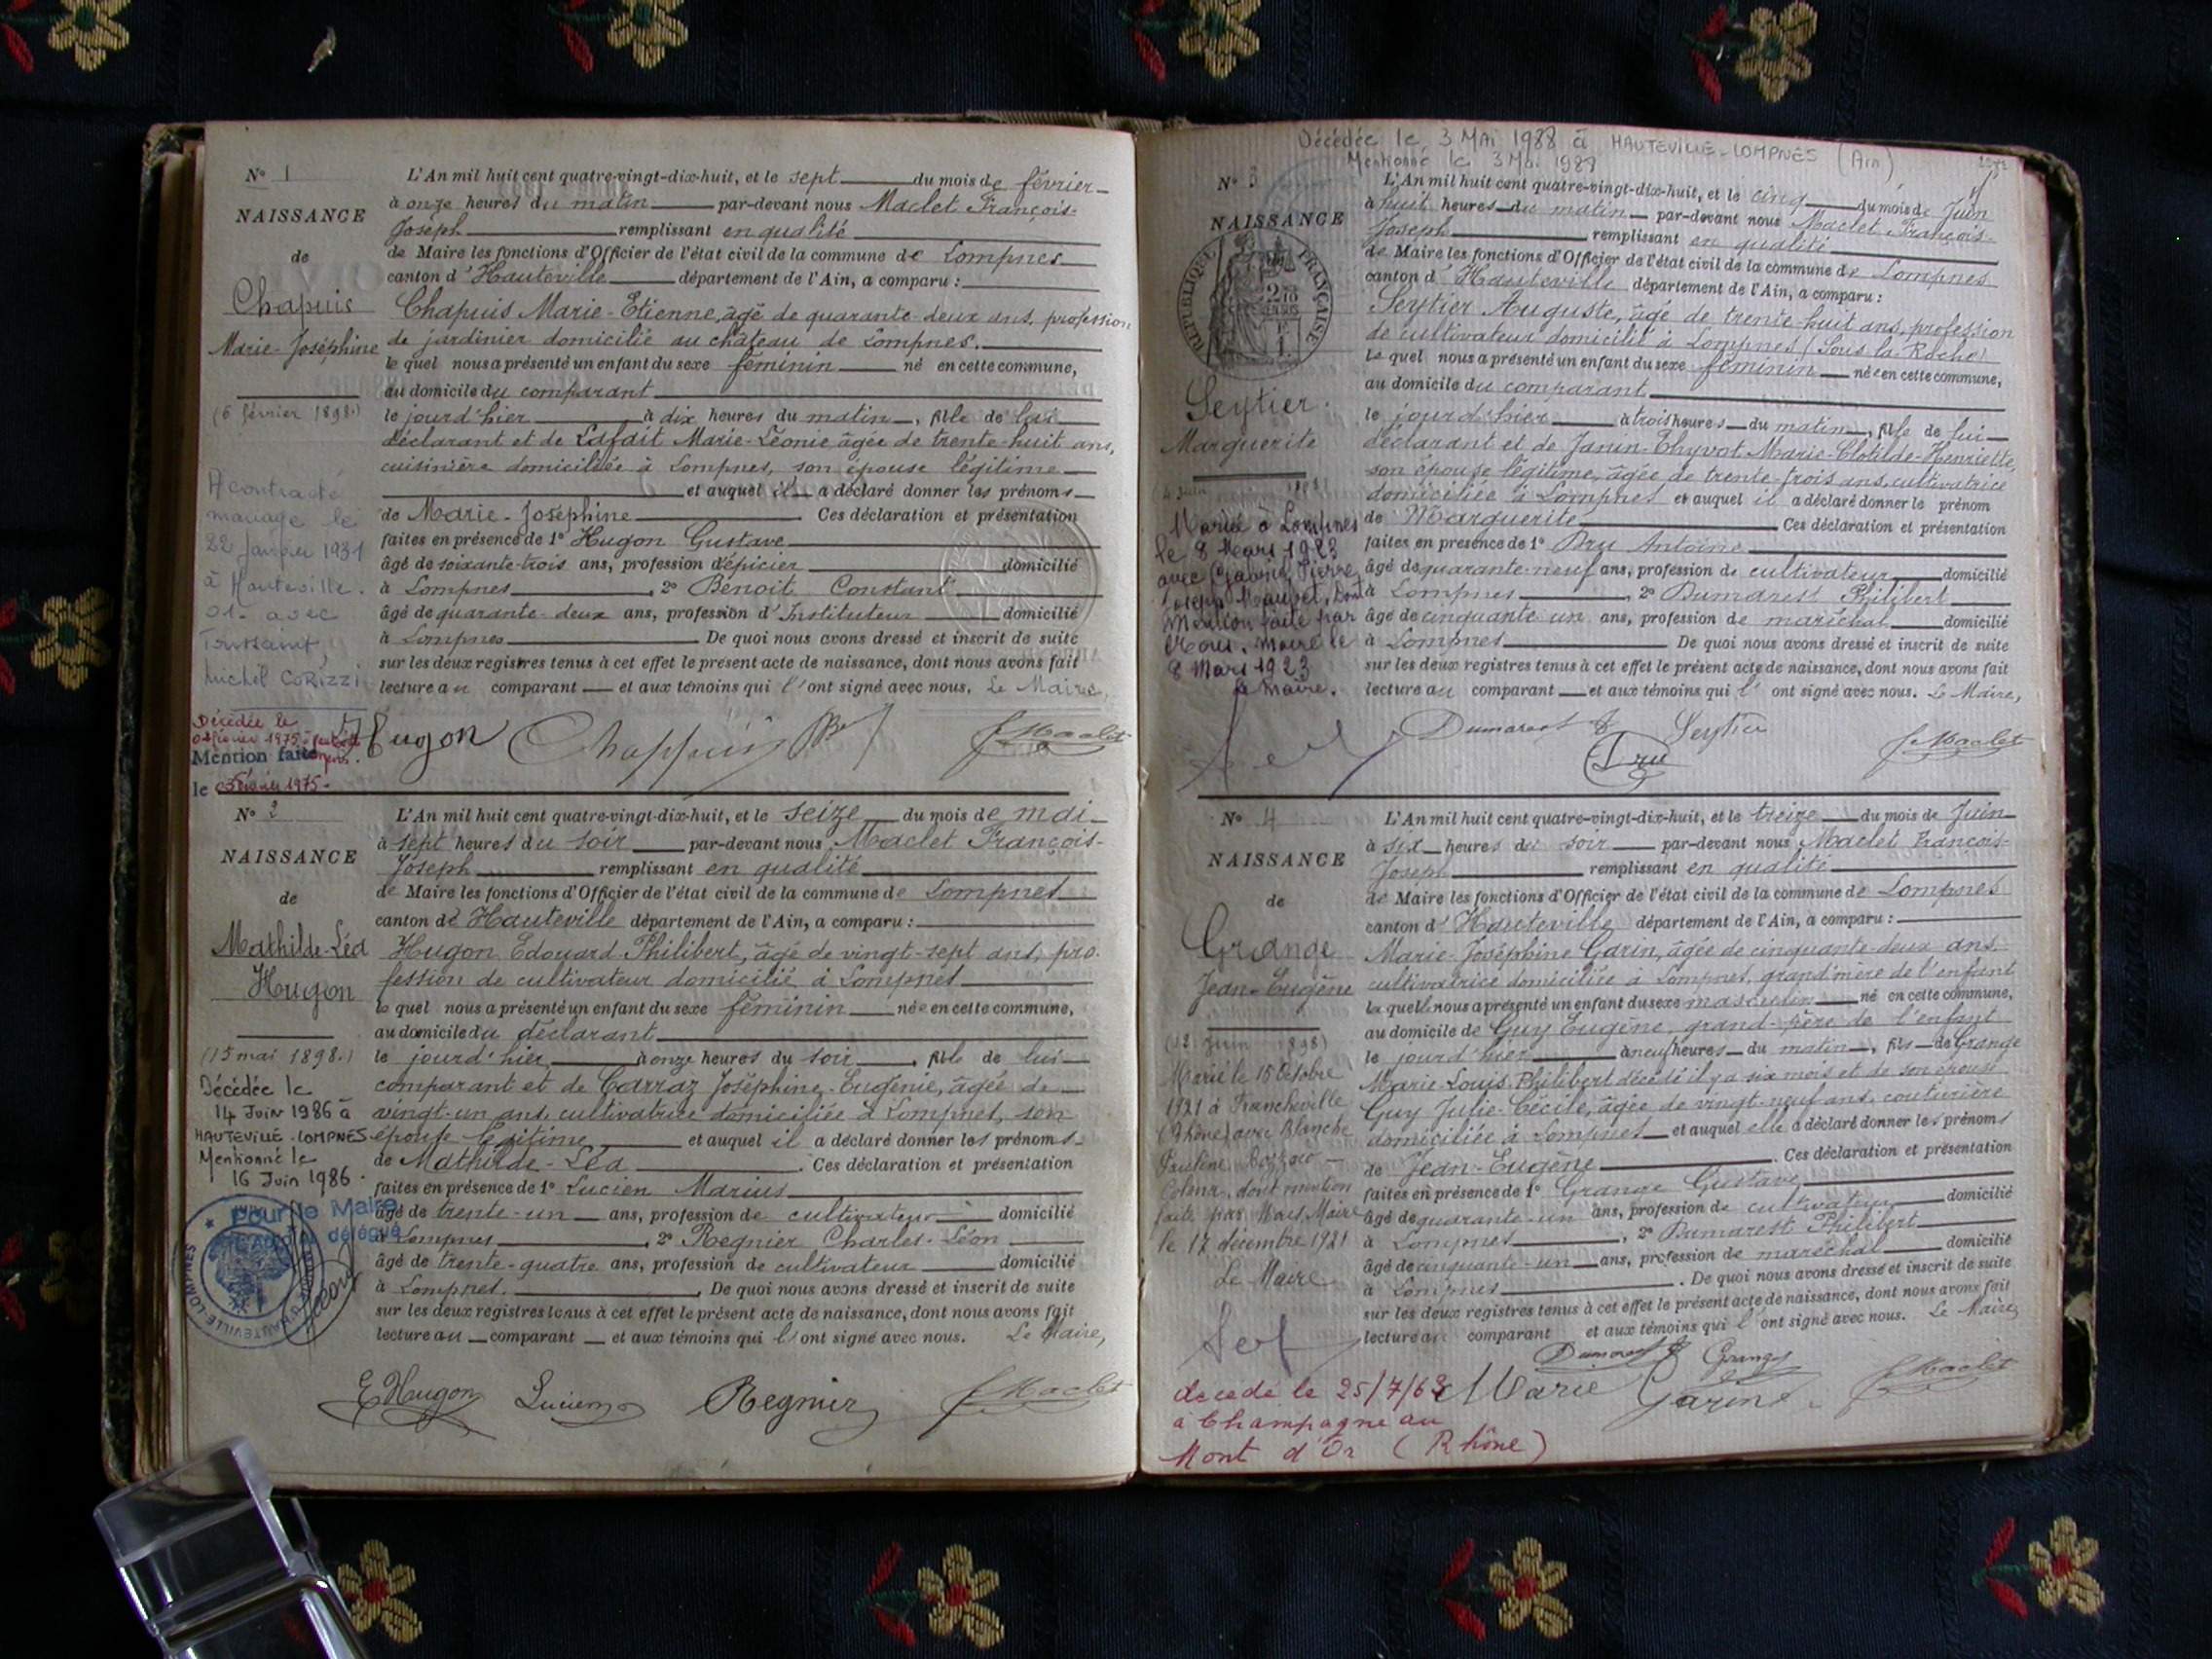 N° 1
NAISSANCE
de
Chapuis
Marie-Joséphine
(6 février 1898.)
A contracté
mariage le
22 janvier 1931
à Hauteville.
01. avec
Toussaint,
Michel CORIZZI
Décédée le
1975
Mention faite
le 1975.
L'An mil huit cent quatre-vingt-dix-huit, et le sept du mois de février
à onze heures du matin par-devant nous Maclet François-
Joseph remplissant en qualité
de Maire les fonctions d'Officier de l'état civil de la commune de Lompnes
canton d'Hauteville département de l'Ain, a comparu :
Chapuis Marie-Etienne, âgé de quarante-deux ans, profession
de jardinier domicilié au château de Lompnes.
le quel nous a présenté un enfant du sexe féminin né en cette commune,
au domicile du comparant
le jourd'hier à dix heures du matin, fille de lui
déclarant et de Lafait Marie-Léonie âgée de trente-huit ans,
cuisinière domiciliée à Lompnes, son épouse légitime
et auquel il a déclaré donner les prénoms
de Marie-Joséphine. Ces déclaration et présentation
faites en présence de 1° Hugon Gustave
âgé de soixante-trois ans, profession d'épicier domicilié
à Lompnes, 2° Benoit Constant
âgé de quarante-deux ans, profession d'Instituteur domicilié
à Lompnes. De quoi nous avons dressé et inscrit de suite
sur les deux registres tenus à cet effet le présent acte de naissance, dont nous avons fait
lecture au comparant et aux témoins qui l'ont signé avec nous. Le Maire,
Hugon Chappuis F. Maclet
N° 2
NAISSANCE
de
Mathilde-Léa
Hugon
(15 mai 1898.)
Décédée le
14 Juin 1986 à
HAUTEVILLE-LOMPNES
Mentionné le
16 Juin 1986.
Pour le Maire
délégué
L'An mil huit cent quatre-vingt-dix-huit, et le seize du mois de mai
à sept heures du soir par-devant nous Maclet François-
Joseph remplissant en qualité
de Maire les fonctions d'Officier de l'état civil de la commune de Lompnes
canton de Hauteville département de l'Ain, a comparu :
Hugon Edouard Philibert, âgé de vingt-sept ans, pro-
fession de cultivateur domicilié à Lompnes
le quel nous a présenté un enfant du sexe féminin née en cette commune,
au domicile du déclarant
le jourd'hier à onze heures du soir, fille de lui
comparant et de Carraz Joséphine-Eugénie, âgée de
vingt-un ans, cultivatrice domiciliée à Lompnes, son
épouse légitime et auquel il a déclaré donner les prénoms
de Mathilde-Léa. Ces déclaration et présentation
faites en présence de 1° Lucien Marius
âgé de trente-un ans, profession de cultivateur domicilié
à Lompnes, 2° Regnier Charles-Léon
âgé de trente-quatre ans, profession de cultivateur domicilié
à Lompnes. De quoi nous avons dressé et inscrit de suite
sur les deux registres tenus à cet effet le présent acte de naissance, dont nous avons fait
lecture au comparant et aux témoins qui l'ont signé avec nous. Le Maire,
E Hugon Lucien Regnier F. Maclet
Décédée le 3 Mai 1988 à HAUTEVILLE-LOMPNES (Ain)
Mentionné le 3 Mai 1988
N° 3
NAISSANCE
RÉPUBLIQUE FRANÇAISE
Seytier
Marguerite
4 Juin 1898
Mariée à Lompnes
le 8 Mars 1923
avec Pierre
Joseph dont
mention faite par
Nous, Maire le
8 Mars 1923
Le Maire.
L'An mil huit cent quatre-vingt-dix-huit, et le cinq du mois de Juin
à huit heures du matin par-devant nous Maclet François-
Joseph remplissant en qualité
de Maire les fonctions d'Officier de l'état civil de la commune de Lompnes
canton d'Hauteville département de l'Ain, a comparu :
Seytier Auguste, âgé de trente-huit ans, profession
de cultivateur domicilié à Lompnes (Sous-la-Roche)
le quel nous a présenté un enfant du sexe féminin née en cette commune,
au domicile du comparant
le jourd'hier à trois heures du matin, fille de lui
déclarant et de Janin-Thyvot Marie-Clotilde-Henriette,
son épouse légitime, âgée de trente-trois ans, cultivatrice
domiciliée à Lompnes et auquel il a déclaré donner le prénom
de Marguerite Ces déclaration et présentation
faites en présence de 1° Dru Antoine
âgé de quarante-neuf ans, profession de cultivateur domicilié
à Lompnes, 2° Dumarest Philibert
âgé de cinquante un ans, profession de maréchal domicilié
à Lompnes De quoi nous avons dressé et inscrit de suite
sur les deux registres tenus à cet effet le présent acte de naissance, dont nous avons fait
lecture au comparant et aux témoins qui l'ont signé avec nous. Le Maire,
Dumarest Seytier
Dru F. Maclet
N° 4
NAISSANCE
de
Grange
Jean-Eugène
(12 Juin 1898)
Marié le 15 Octobre
1921 à Francheville
(Rhône) avec Blanche
Pauline
dont mention
faite par Nous, Maire
le 17 décembre 1921
Le Maire
L'An mil huit cent quatre-vingt-dix-huit, et le treize du mois de Juin
à six heures du soir par-devant nous Maclet François-
Joseph remplissant en qualité
de Maire les fonctions d'Officier de l'état civil de la commune de Lompnes
canton d'Hauteville département de l'Ain, a comparu :
Marie-Joséphine Garin, âgée de cinquante-deux ans
cultivatrice domiciliée à Lompnes, grand'mère de l'enfant
laquelle nous a présenté un enfant du sexe masculin né en cette commune,
au domicile de Guy Eugène, grand-père de l'enfant
le jourd'hier à neuf heures du matin, fils de Grange
Marie-Louis-Philibert décédé il y a six mois et de son épouse
Guy Julie-Cécile, âgée de vingt-neuf ans, couturière
domiciliée à Lompnes et auquel elle a déclaré donner les prénoms
de Jean-Eugène. Ces déclaration et présentation
faites en présence de 1° Grange Gustave
âgé de quarante-un ans, profession de cultivateur domicilié
à Lompnes, 2° Dumarest Philibert
âgé de cinquante-un ans, profession de maréchal domicilié
à Lompnes. De quoi nous avons dressé et inscrit de suite
sur les deux registres tenus à cet effet le présent acte de naissance, dont nous avons fait
lecture au comparant et aux témoins qui l'ont signé avec nous. Le Maire,
Dumarest Grange
Marie Garin F. Maclet
décédé le 25/7/63
à Champagne au
Mont d'Or (Rhône)